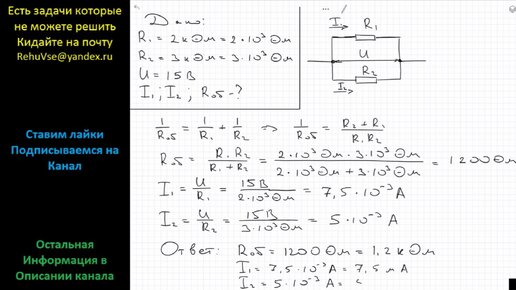 Есть задачи которые
не можете решить
Кидайте на почту
RehuVse@yandex.ru
Ставим лайки
Подписываемся на
Канал
Остальная
Информация в
Описании канала
Дано:
R₁ = 2 кОм = 2·10³ Ом
R₂ = 3 кОм = 3·10³ Ом
U = 15 В
I₁; I₂; Rоб - ?
I₁ R₁
U
R₂
I₂
1/Rоб = 1/R₁ + 1/R₂ ⇒ 1/Rоб = (R₂ + R₁)/(R₁ R₂)
Rоб = (R₁ R₂)/(R₁ + R₂) = (2·10³ Ом · 3·10³ Ом)/(2·10³ Ом + 3·10³ Ом) = 1200 Ом
I₁ = U/R₁ = 15 В/(2·10³ Ом) = 7,5·10⁻³ А
I₂ = U/R₂ = 15 В/(3·10³ Ом) = 5·10⁻³ А
Ответ: Rоб = 1200 Ом = 1,2 кОм
I₁ = 7,5·10⁻³ А = 7,5 мА
I₂ = 5·10⁻³ А =